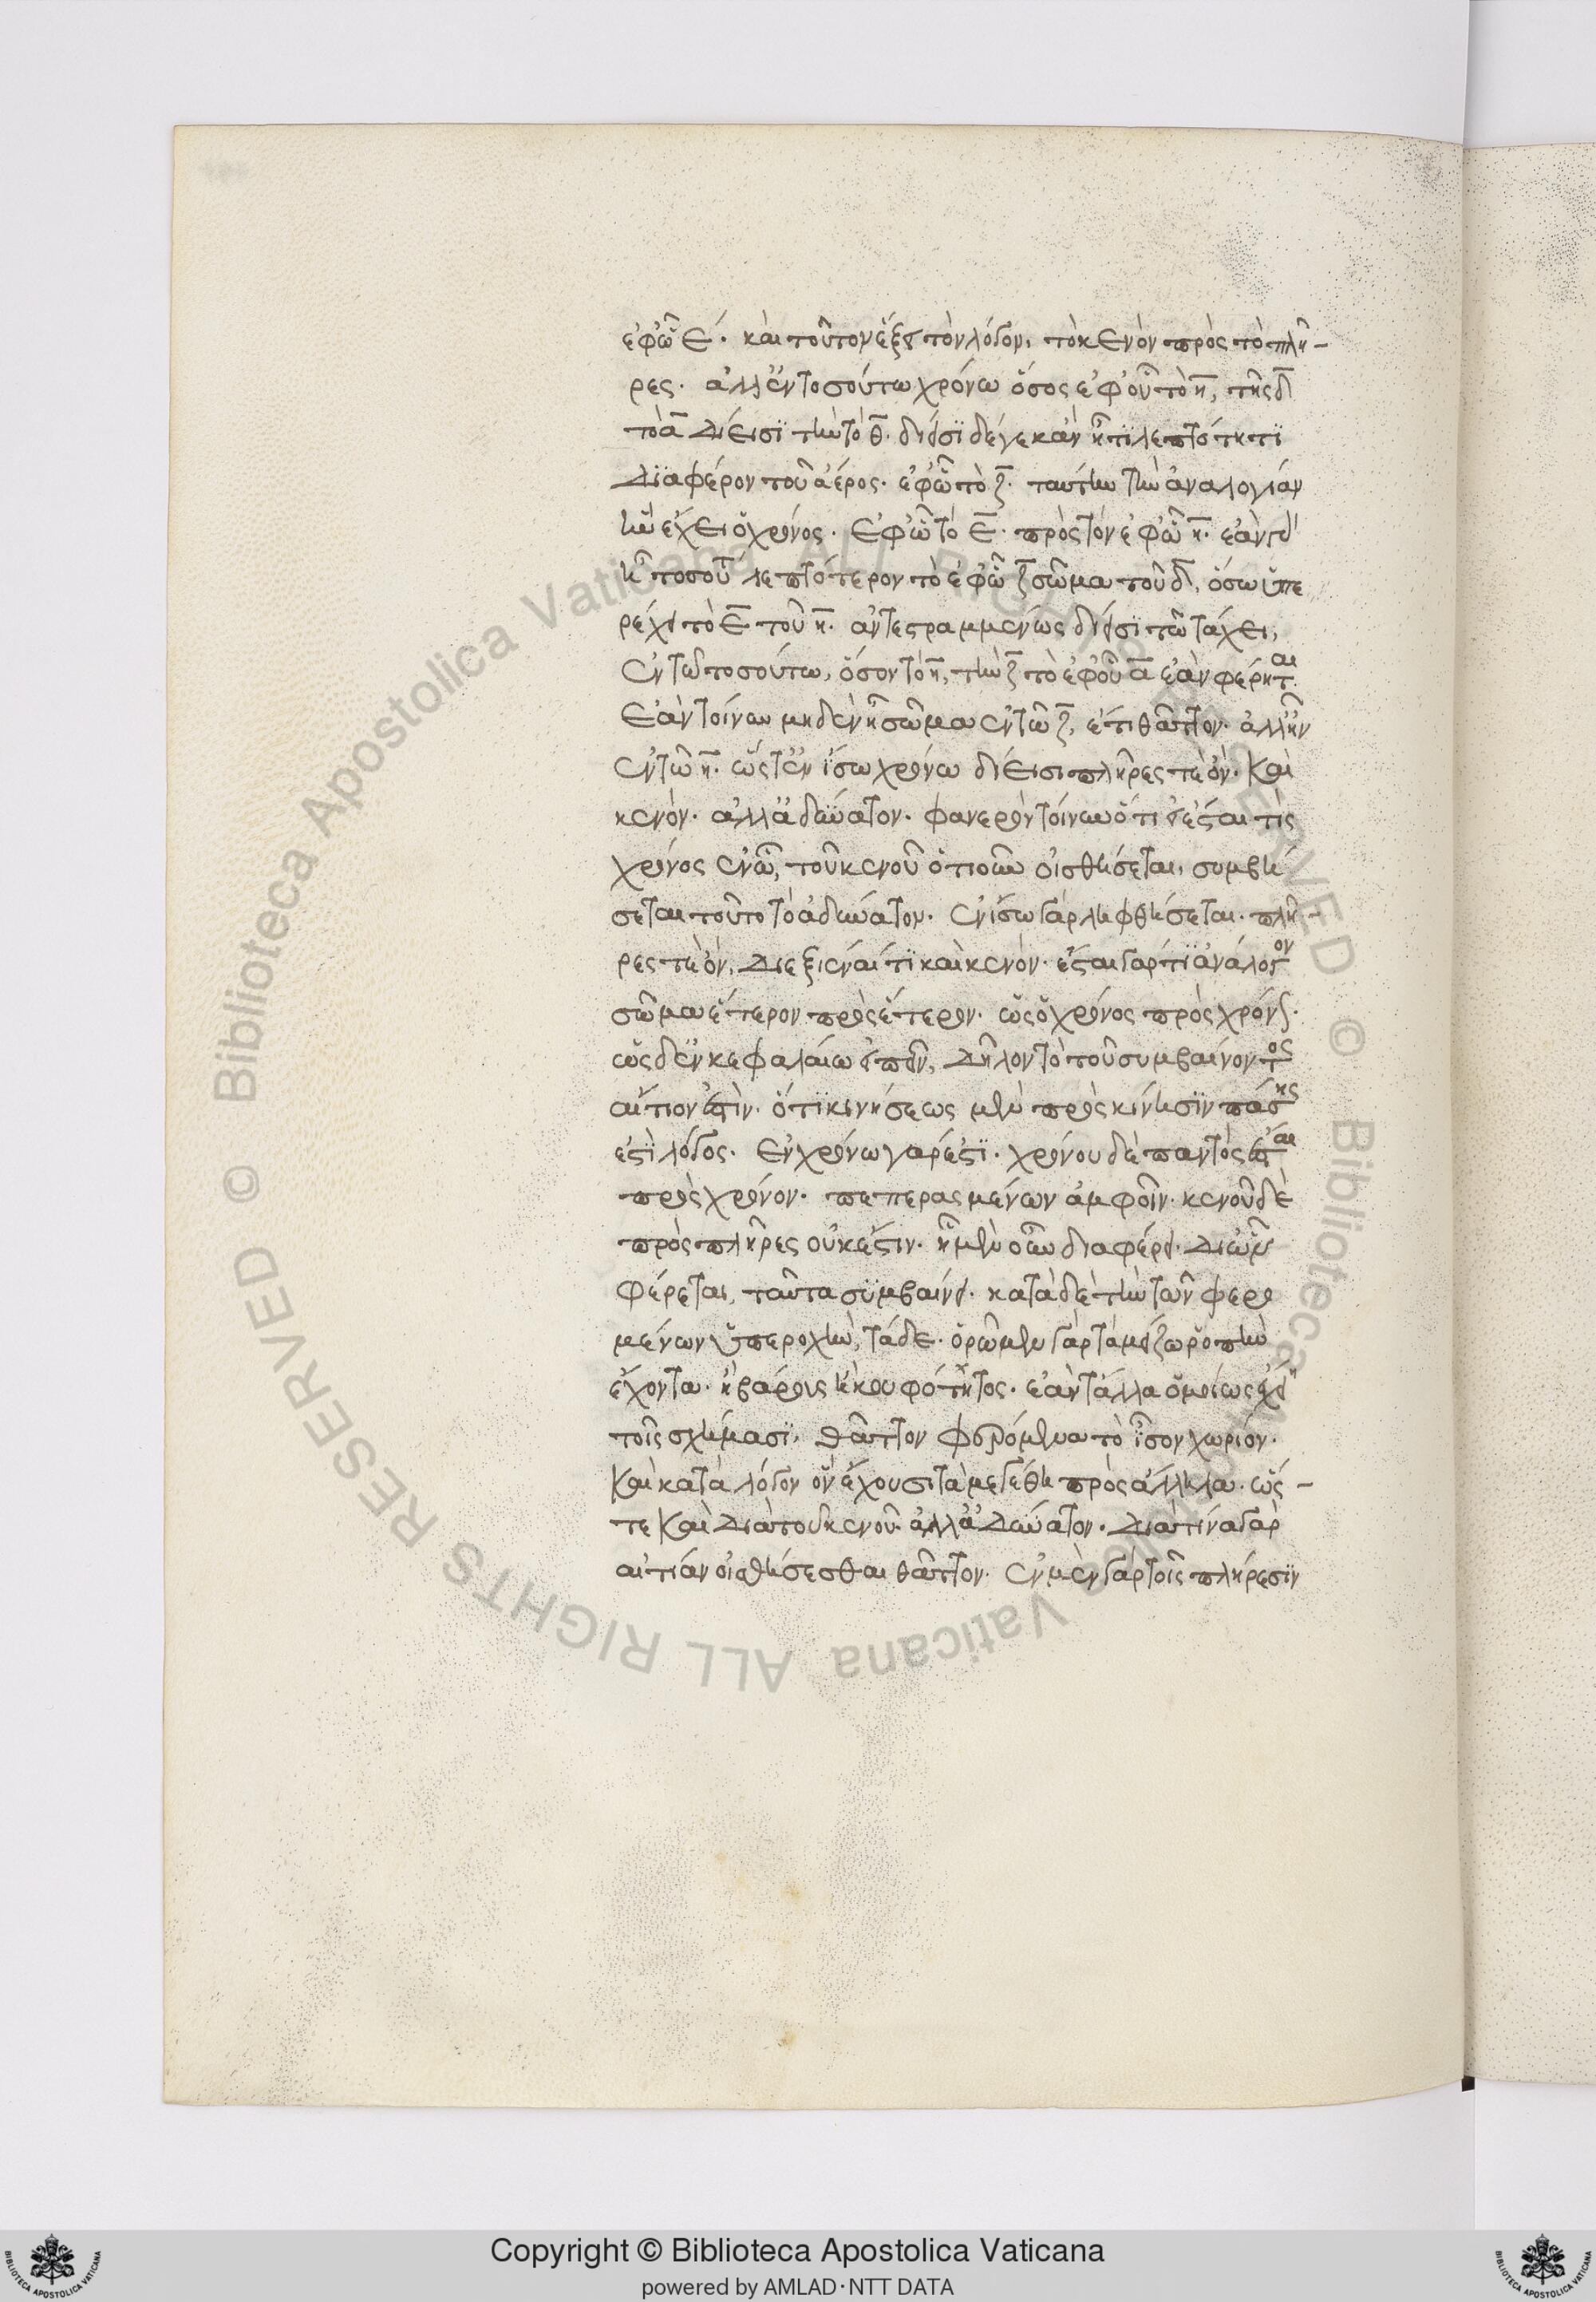 ἐφῶ ε̄. καὶ τοῦτον ἕξει τὸν λόγον, τὸ κενὸν πρὸς τὸ πλῆ-
ρες. ἀλλ' ἐν τοσούτω χρόνω ὅσος ἐφ' οὗ τὸ η̄, τῆς δ̄
τὸ ᾱ δίεισϊ τὴν τὸ θ̄. δίεισϊ δέ γε κἂν ἦ τϊ λεπτότητϊ
διαφέρον τοῦ ἀέρος. ἐφῶ τὸ ζ̄. ταύτην τὴν ἀναλογίαν
ἣν ἔχει ὁ χρόνος. ἐφ' ὧ τὸ ε̄. πρὸς τὸν ἐφ' ὧ η̄. ἐὰν γὰρ
ἦ τοσούτω λεπτότερον τὸ ἐφ' ὧ ζ̄ σῶμα τοῦ δ̄, ὅσω ὑπε
ρέχει τὸ ε̄ τοῦ η̄. ἀντεστραμμένως δίεισϊ τῶ τάχει,
ἐν τῶ τοσούτω, ὅσον τὸ η̄, τὴν ζ̄ τὸ ἐφ' οὗ ᾱ ἐὰν φέρηται.
Ἐὰν τοίνυν μηδὲν ἦ σῶμα ἐν τῶ ζ̄, ἔτι θᾶττον. ἀλλ' ἦν
ἐν τῶ η̄. ὥστ' ἐν ἴσω χρόνω δίεισι πλῆρες τὲ ὄν. καὶ
κενόν. ἀλλ' ἀδύνατον. φανερὸν τοίνυν ὅτι εἰ ἔσται τὶς
χρόνος ἐν ὧ, τοῦ κενοῦ ὁτιοῦν οἰσθήσεται, συμβή
σεται τοῦτο τὸ ἀδύνατον. ἐν ἴσω γὰρ ληφθήσεται. πλῆ-
ρες τὲ ὄν, διεξιέναι τϊ καὶ κενόν. ἔσται γάρ τϊ ἀνάλογον
σῶμα ἕτερον πρὸς ἕτερον. ὡς ὁ χρόνος πρὸς χρόνον.
ὡς δ' ἐν κεφαλαίω εἰπεῖν, δῆλον τὸ τοῦ συμβαίνοντος
αἴτιον ἐστὶν. ὅτϊ κινήσεως μὲν πρὸς κίνησϊν πάσης
ἐστϊ λόγος. ἐν χρόνω γάρ ἐστϊ. χρόνου δὲ παντός ἐσται
πρὸς χρόνον. πεπερασμένων ἀμφοῖν. κενοῦ δὲ
πρὸς πλῆρες οὐκ ἔστιν. ἦ μὲν οὖν διαφέρει. δι' ὧν
φέρεται, ταῦτα συμβαίνει. κατὰ δὲ τὴν τῶν φερο
μένων ὑπεροχὴν, τάδε. ὁρῶμεν γὰρ τὰ μείζω ῥοπὴν
ἔχοντα. ἢ βάρους ἢ κουφότητος. ἐὰν τἄλλα ὁμοίως ἔχη
τοῖς σχήμασϊ, θᾶττον φερόμενα τὸ ἶσον χωρίον.
καὶ κατὰ λόγον ὃν ἔχουσι τὰ μεγέθη πρὸς ἄλληλα. ὥσ-
τε καὶ διὰ τοῦ κενοῦ. ἀλλ' ἀδύνατον. διὰ τίνα γὰρ
αἰτίαν οἰσθήσεσθαι θᾶττον. ἐν μὲν γὰρ τοῖς πλήρεσϊν
Copyright © Biblioteca Apostolica Vaticana
powered by AMLAD·NTT DATA
© Biblioteca Apostolica Vaticana ALL RIGHTS RESERVED © Biblioteca Apostolica Vaticana ALL RIGHTS RESERVED